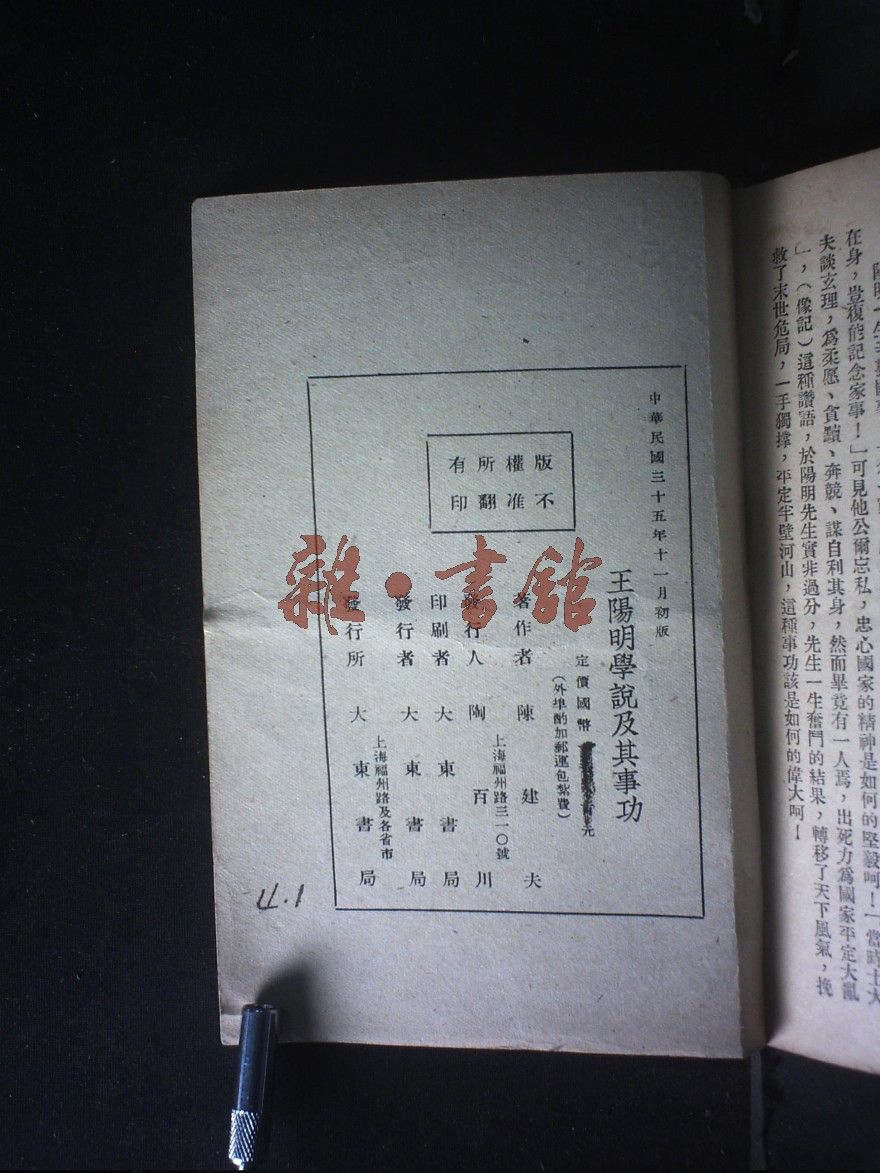 在身，豈復能記念家事！」可見他公爾忘私，忠心國家的精神是如何的堅毅呵！「當時士大
夫談玄理，爲柔愿、貪黷、奔競、謀自利其身，然而畢竟有一人焉，出死力爲國家平定大亂
」，（像記）這種讚語，於陽明先生實非過分，先生一生奮鬥的結果，轉移了天下風氣，挽
救了末世危局，一手獨撐，平定半壁河山，這種事功該是如何的偉大呵！
中華民國三十五年十一月初版
王陽明學說及其事功
定價國幣
元
（外埠酌加郵運包紮費）
版權所有
不准翻印
著作者 陳建夫
發行人 陶百川
上海福州路三一〇號
印刷者 大東書局
發行者 大東書局
上海福州路及各省市
發行所 大東書局
雜·書館